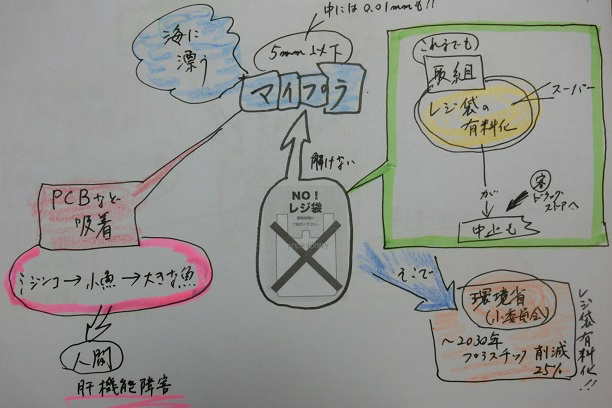 中には0.01mmも!!
海に
漂う
5mm以下
マイプラ
これまでも
取組
レジ袋の
有料化
スーパー
が
客
ドラッグ
ストアへ
中止も
溶けない
NO！
レジ袋
PCBなど
吸着
ミジンコ→小魚→大きな魚
人間
肝機能障害
そこで
環境省
(小委員会)
～2030年
プラスチック 削減
25%
レジ袋有料化!!